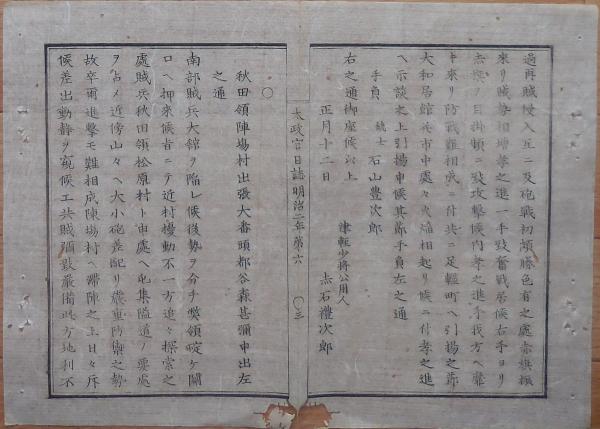 過再賊侵入互ニ及砲戰初頃勝色有之處赤旗振
來リ賊勢相増孝之進一手致奮戰居候右手ヨリ
赤旗ヲ目掛頻ニ致攻撃候内孝之進手我方ヘ靡
キ來リ防戰難相成ニ付共ニ足輕町ヘ引揚之節
大和居館并市中處々火焔相起リ候ニ付孝之進
ヘ示談之上引揚申候其節手負左之通
手負
銃士 石山豊次郎
右之通御座候以上
津輕少將公用人
正月十二日 赤石禮次郎
太政官日誌明治二年第六 ○三
○
秋田領陣場村出張大番頭都谷森甚彌申出左
之通
南部賊兵大館ヲ陥レ候後勢ヲ分チ弊領碇ケ關
口ヘ押來候者ニテ近村擾動不一方追々探索之
處賊兵秋田領松原村ト申處ヘ屯集隘道ノ要處
ヲ占メ近傍山々ヘ大小砲差配リ嚴重防禦之勢
故卒爾進撃モ難相成陳場村ヘ滯陣之上日々斥
候差出動靜ヲ窺候エ共賊彌致嚴備此方地利不